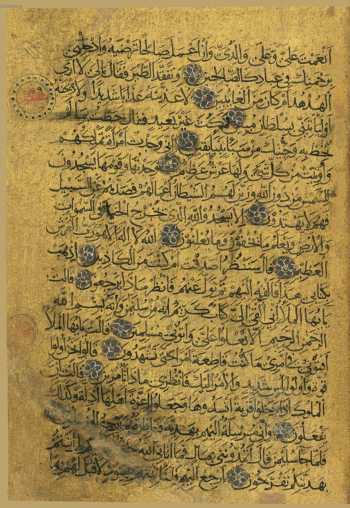 أنعمت علي وعلى والدي وأن أعمل صالحا ترضيه وأدخلني
برحمتك في عبادك الصالحين وتفقد الطير فقال مالي لا أرى
الهدهد أم كان من الغائبين لأعذبنه عذابا شديدا أو لأذبحنه
أو ليأتيني بسلطان مبين فمكث غير بعيد فقال أحطت بما لم
تحط به وجئتك من سبإ بنبإ يقين إني وجدت امرأة تملكهم
وأوتيت من كل شيء ولها عرش عظيم وجدتها وقومها يسجدون
للشمس من دون الله وزين لهم الشيطان أعمالهم فصدهم عن السبيل
فهم لا يهتدون ألا يسجدوا لله الذي يخرج الخبء في السموات
والأرض ويعلم ما تخفون وما تعلنون الله لا إله إلا هو رب العرش
العظيم قال سننظر أصدقت أم كنت من الكاذبين اذهب
بكتابي هذا فألقه إليهم ثم تول عنهم فانظر ماذا يرجعون قالت
يا أيها الملأ إني ألقي إلي كتاب كريم إنه من سليمن وإنه بسم الله
الرحمن الرحيم ألا تعلوا علي وأتوني مسلمين قالت يا أيها الملأ
أفتوني في أمري ما كنت قاطعة أمرا حتى تشهدون قالوا نحن أولوا
قوة وأولوا بأس شديد والأمر إليك فانظري ماذا تأمرين قالت إن
الملوك إذا دخلوا قرية أفسدوها وجعلوا أعزة أهلها أذلة وكذلك
يفعلون وإني مرسلة إليهم بهدية فناظرة بم يرجع المرسلون
فلما جاء سليمن قال أتمدونن بمال فما آتاني الله خير مما آتاكم بل أنتم
بهديتكم تفرحون ارجع إليهم فلنأتينهم بجنود لا قبل لهم بها